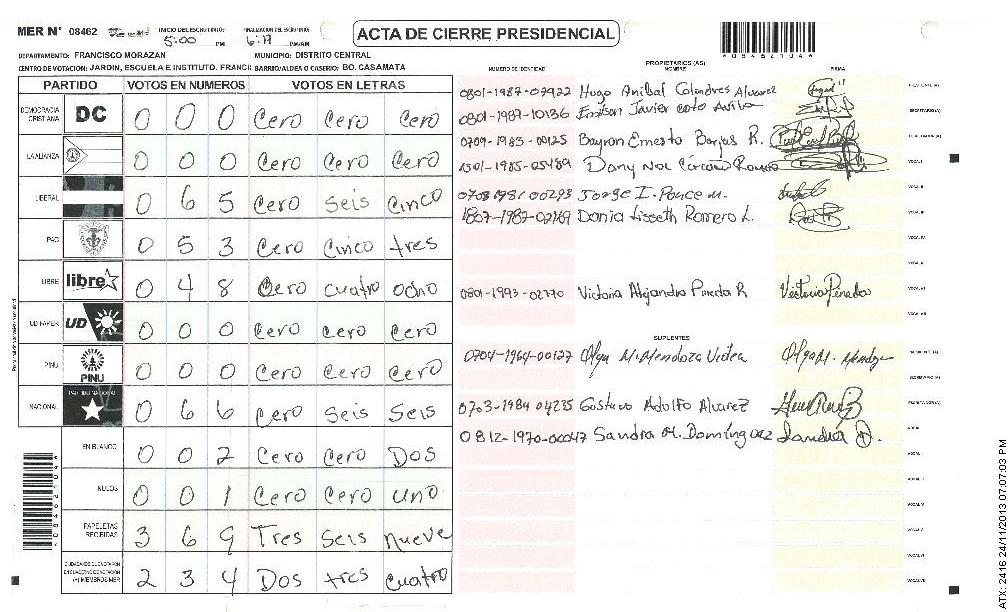 MER Nº 08462 INICIO DEL ESCRUTINIO: 5:00 PM FINALIZACION DEL ESCRUTINIO: 6:17 PM/AM
ACTA DE CIERRE PRESIDENCIAL
*08462104*
DEPARTAMENTO: FRANCISCO MORAZAN MUNICIPIO: DISTRITO CENTRAL
CENTRO DE VOTACION: JARDIN, ESCUELA E INSTITUTO. FRANCI: BARRIO/ALDEA O CASERIO: BO. CASAMATA
PARTIDO VOTOS EN NUMEROS VOTOS EN LETRAS
DEMOCRACIA CRISTIANA DC 0 0 0 Cero Cero Cero
LA ALIANZA 0 0 0 Cero Cero Cero
LIBERAL 0 6 5 Cero Seis Cinco
PAC 0 5 3 Cero Cinco tres
LIBRE libre 0 4 8 Cero cuatro ocho
UD FAPER UD 0 0 0 Cero Cero Cero
PINU PINU 0 0 0 Cero Cero Cero
NACIONAL PARTIDO NACIONAL 0 6 6 Cero Seis Seis
EN BLANCO 0 0 2 Cero Cero Dos
NULOS 0 0 1 Cero Cero uno
PAPELETAS RECIBIDAS 3 6 9 Tres Seis nueve
2 3 4 Dos tres cuatro
NUMERO DE IDENTIDAD PROPIETARIOS (AS) NOMBRE FIRMA
0801-1987-07922 Hugo Anibal Colindres Alvarez PRESIDENTE (A)
0801-1987-10136 Emilson Javier Coto Avila SECRETARIO (A)
0709-1983-00125 Bayron Ernesto Borjas R. ESCRUTADOR (A)
1501-1985-05489 Dany Noe Cárcamo Romero VOCAL I
0708 1981 00293 Jorge I. Ponce M. VOCAL II
1807-1987-02169 Dania Lisseth Romero L. VOCAL III
VOCAL IV
VOCAL V
0801-1993-02770 Victoria Alejandra Pineda R Victoria Pineda VOCAL VI
VOCAL VII
SUPLENTES
0704-1964-00127 Olga M. Mendoza Videa Olga M. Mendoza PRESIDENTE (A)
SECRETARIO (A)
0703-1984 04235 Gustavo Adolfo Alvarez ESCRUTADOR (A)
0812-1970-00047 Sandra M. Domínguez Sandra D. VOCAL I
VOCAL II
VOCAL III
VOCAL IV
VOCAL V
VOCAL VI
VOCAL VII
*08462104*
ATX: 2416 24/11/2013 07:07:03 PM